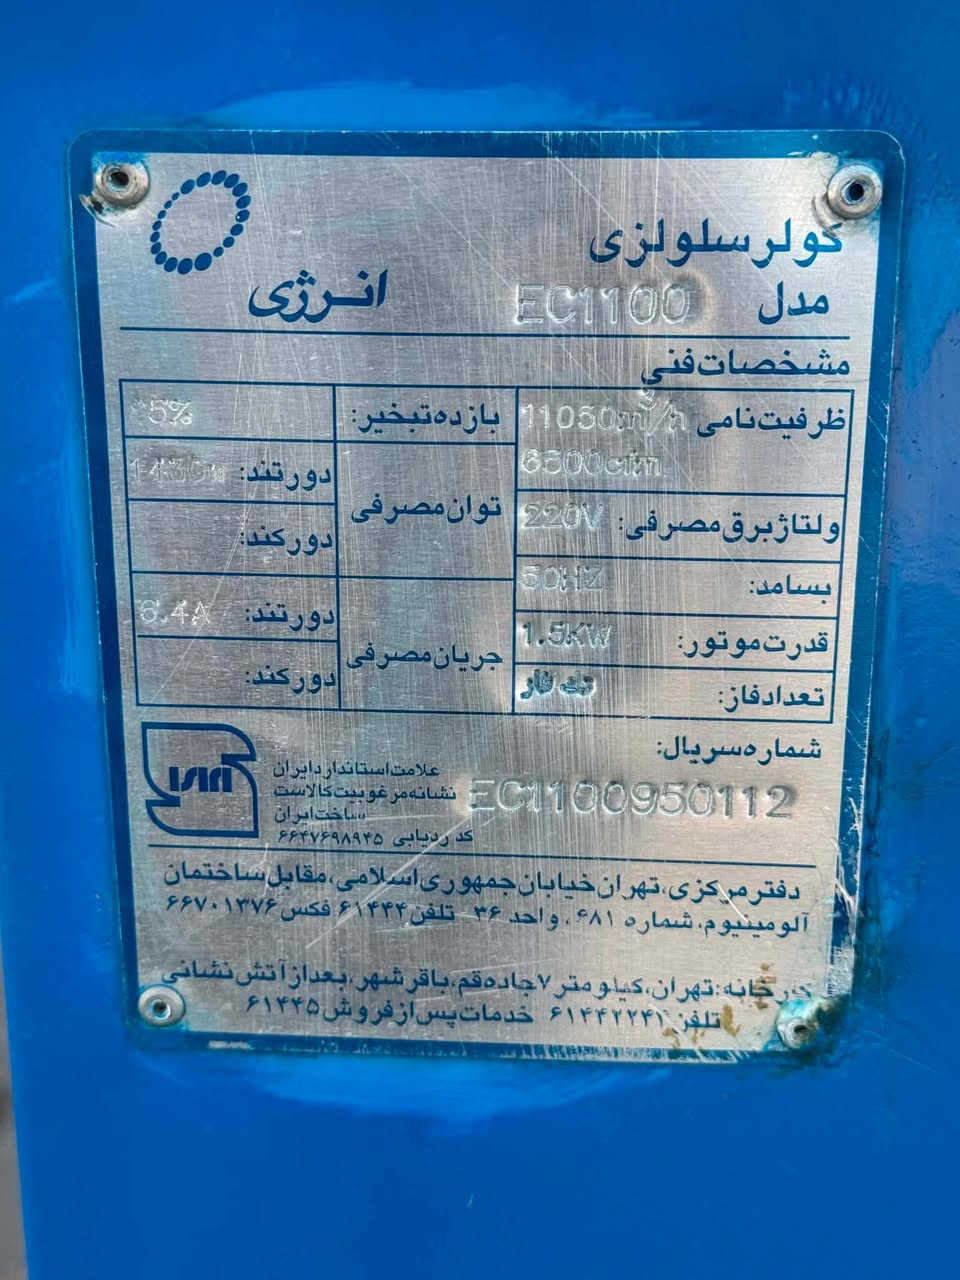 کولر سلولزی
انرژی
مدل EC1100
مشخصات فنی
ظرفیت نامی 11050m³/h
6500cfm
ولتاژ برق مصرفی: 220V
بسامد: 50HZ
قدرت موتور: 1.5KW
تعداد فاز: تک فاز
بازده تبخیر:
توان مصرفی
دور تند:
دور کند:
جریان مصرفی
دور تند: 6.4A
دور کند:
شماره سریال:
EC1100950112
علامت استاندارد ایران
نشانه مرغوبیت کالاست
ساخت ایران
کد ردیابی ۶۶۴۷۶۹۸۹۴۵
دفتر مرکزی، تهران خیابان جمهوری اسلامی، مقابل ساختمان
آلومینیوم، شماره ۶۸۱، واحد ۳۶ تلفن ۶۱۴۴۴، فکس ۶۶۷۰۱۳۷۶
کارخانه: تهران، کیلومتر ۷ جاده قم، باقرشهر، بعد از آتش نشانی
تلفن خدمات پس از فروش ۶۱۴۴۵